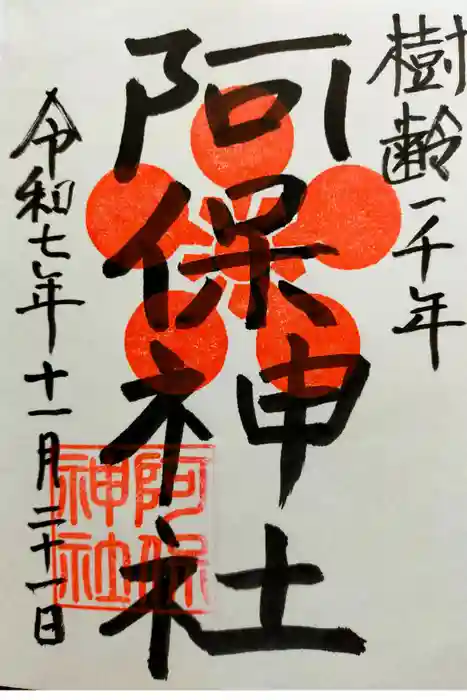 樹齢一千年
阿保神社
令和七年十一月二十一日
阿保
神社